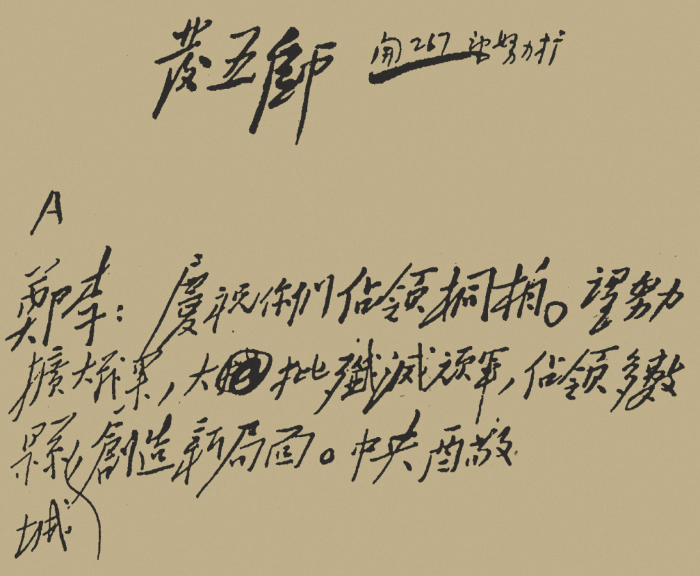 發五師 用267 望努力扩
A
鄭李：慶祝你們佔領桐柏。望努力
擴大我軍，大批殲滅頑軍，佔領多數
縣城，創造新局面。中央酉敬